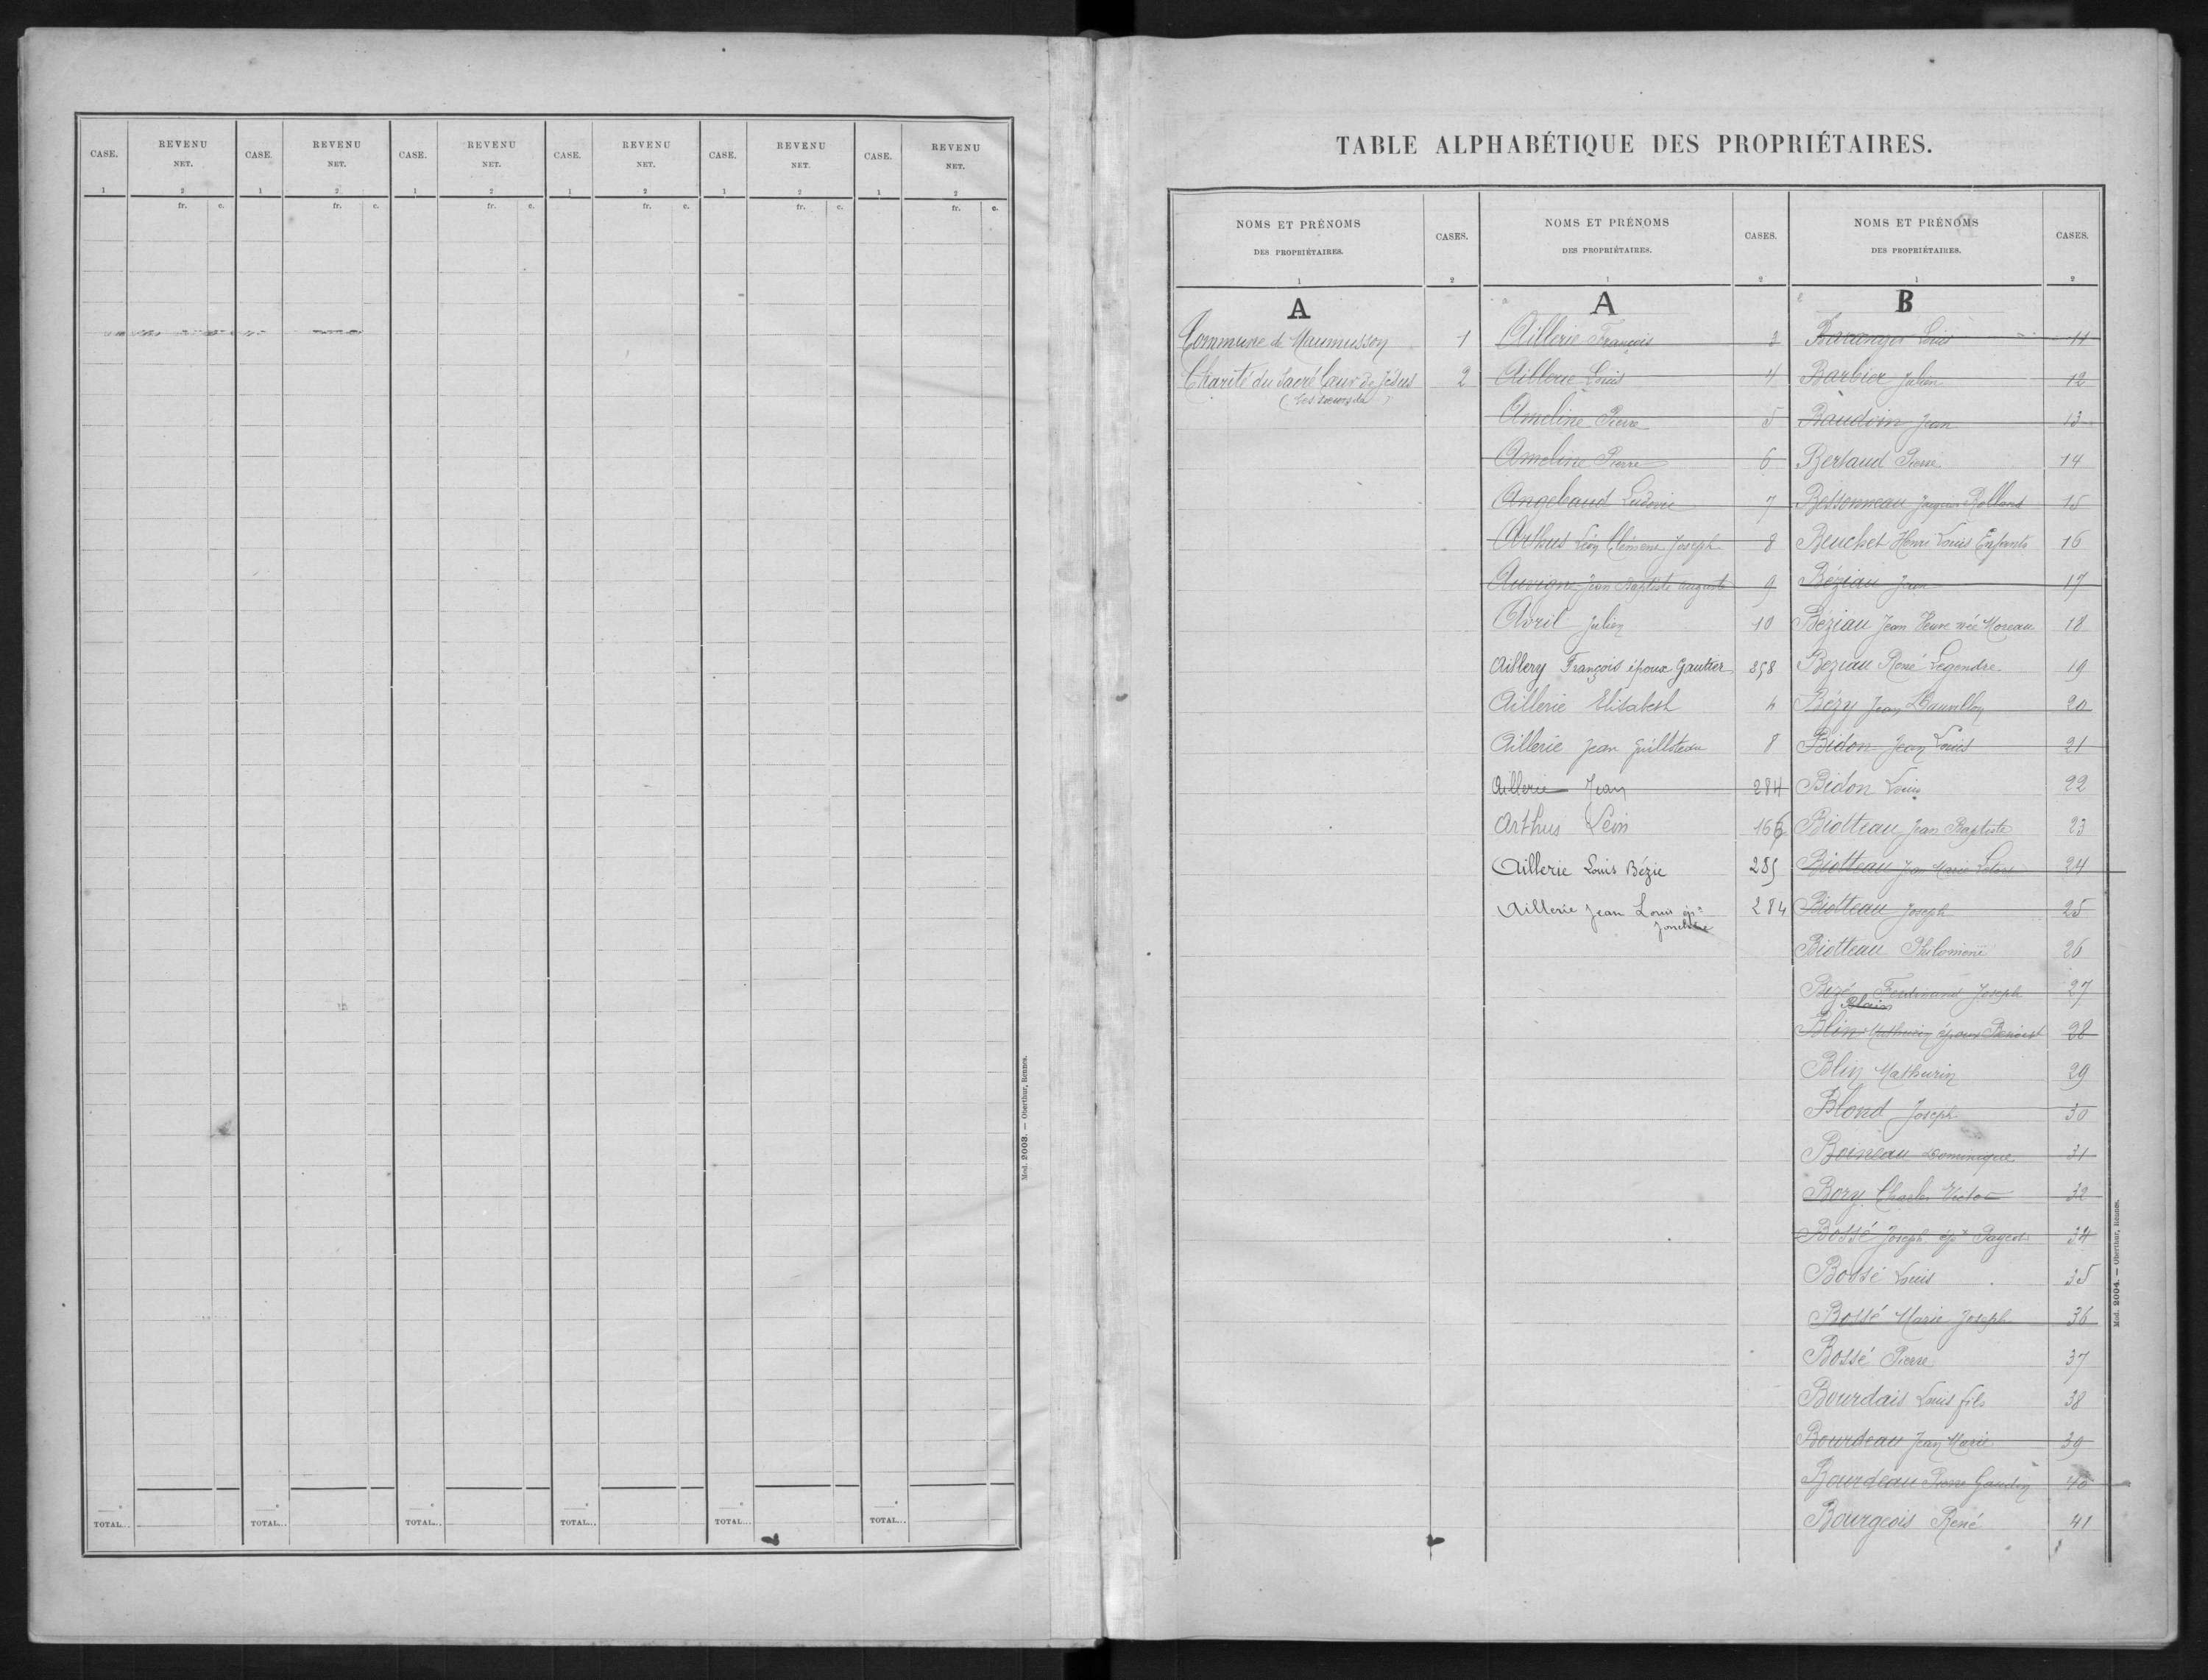 CASE. REVENU NET. CASE. REVENU NET. CASE. REVENU NET. CASE. REVENU NET. CASE. REVENU NET. CASE. REVENU NET.
1 2 1 2 1 2 1 2 1 2 1 2
fr. c. fr. c. fr. c. fr. c. fr. c. fr. c.
TOTAL... TOTAL... TOTAL... TOTAL... TOTAL... TOTAL...
Mod. 2003. — Oberthur, Rennes.
TABLE ALPHABÉTIQUE DES PROPRIÉTAIRES.
NOMS ET PRÉNOMS DES PROPRIÉTAIRES. CASES. NOMS ET PRÉNOMS DES PROPRIÉTAIRES. CASES. NOMS ET PRÉNOMS DES PROPRIÉTAIRES. CASES.
1 2 1 2 1 2
A
Commune de Maumusson 1
Charité du Sacré Cœur de Jésus 2
(Les sœurs de )
A
Aillerie François 3
Aillerie Louis 4
Ameline Pierre 5
Ameline Pierre 6
Angebaud Ludovic 7
Arthus Léon Clément Joseph 8
Auvigne Jean Baptiste Auguste 9
Avril Julien 10
Aillery François époux Gautier 358
Aillerie Elisabeth 4
Aillerie Jean Guilloteau 8
Aillerie Jean 284
Arthus Léon 166
Aillerie Louis Bézie 285
Aillerie Jean Louis ép.x 284
B
Baranger Louis 11
Barbier Julien 12
Baudoin Jean 13
Bertaud Pierre 14
Bessonneau Jacques Rolland 15
Beuchet Henri Louis Enfants 16
Béziau Jean 17
Béziau Jean Veuve née Moreau 18
Beziau René Legendre 19
Bézy Jean 20
Bidon Jean Louis 21
Bidon Louis 22
Biotteau Jean Baptiste 23
Biotteau Jean Marie 24
Biotteau Joseph 25
Biotteau Philomène 26
Bizé Ferdinand Joseph 27
Blain
Blin Mathurin époux Benoist 28
Blin Mathurin 29
Blond Joseph 30
Boineau Dominique 31
Bory Charles Victor 32
Bossé Joseph ép.x Pageot 34
Bossé Louis 35
Bossé Marie Joseph 36
Bossé Pierre 37
Bourdais Louis fils 38
Bourdeau Jean Marie 39
Bourdeau Pierre Gaudin 40
Bourgeois René 41
Mod. 2004. — Oberthur, Rennes.